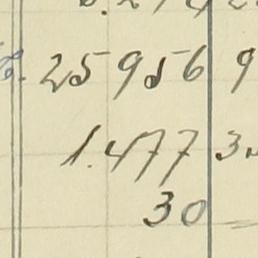 25956 9
1.477 3
30